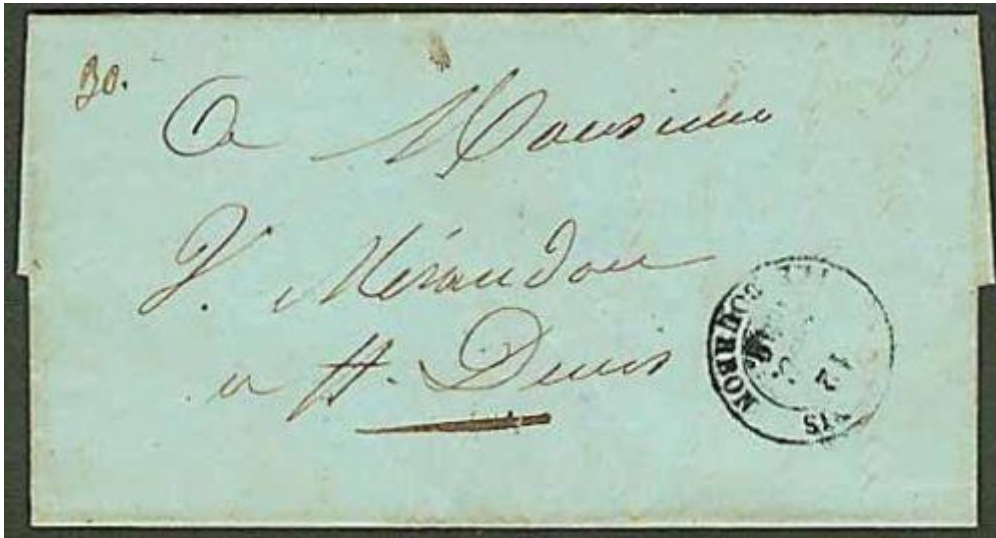 30.
A Monsieur
J. Mérandon
a St. Denis
BOURBON
12